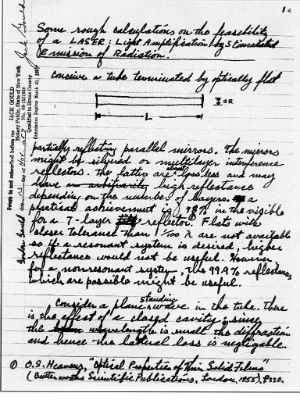 1
Some rough calculations on the feasibility
of a LASER: Light Amplification by Stimulated
Emission of Radiation.
Conceive a tube terminated by optically flat
L
partially reflecting parallel mirrors. The mirrors
might be silvered or multilayer interference
reflectors. The latter are lossless and may
have high reflectance
depending on the number of layers. A
practical achievement is 98% in the visible
for a 7-layer reflector. Flats with
closer tolerance than 1/100 λ are not available
so if a resonant system is desired, higher
reflectance would not be useful. However
for a nonresonant system, the 99.9% reflectances
which are possible might be useful.
Consider a plane standing wave in the tube. There
is the effect of a closed cavity; since
the wavelength is small the diffraction
and hence the lateral loss is negligible.
O.S. Heavens, "Optical Properties of Thin Solid Films"
(Butterworths Scientific Publications, London, 1955), p. 220.
JACK GOULD
Notary Public, State of New York
Qualified in Bronx County